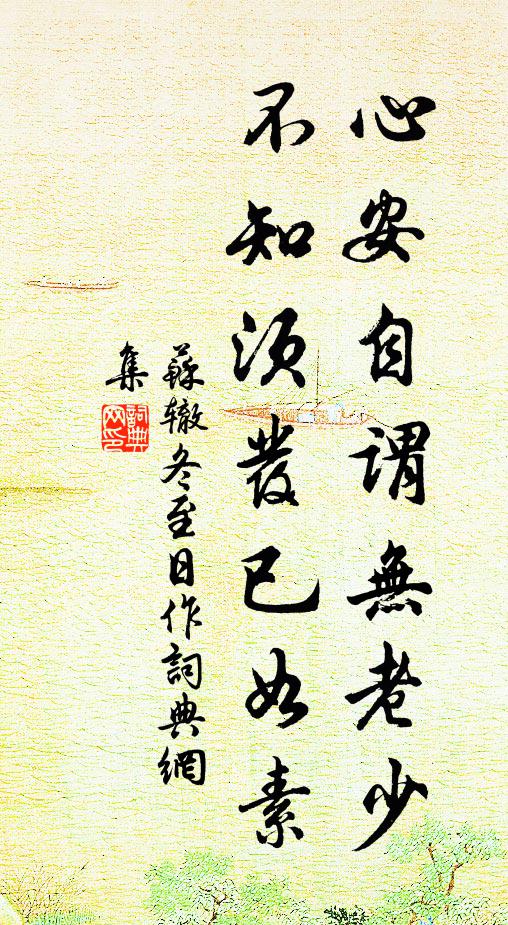 心安自謂無老少
不知須發已如素
蘇轍冬至日作詞典網
集
詞典
网印